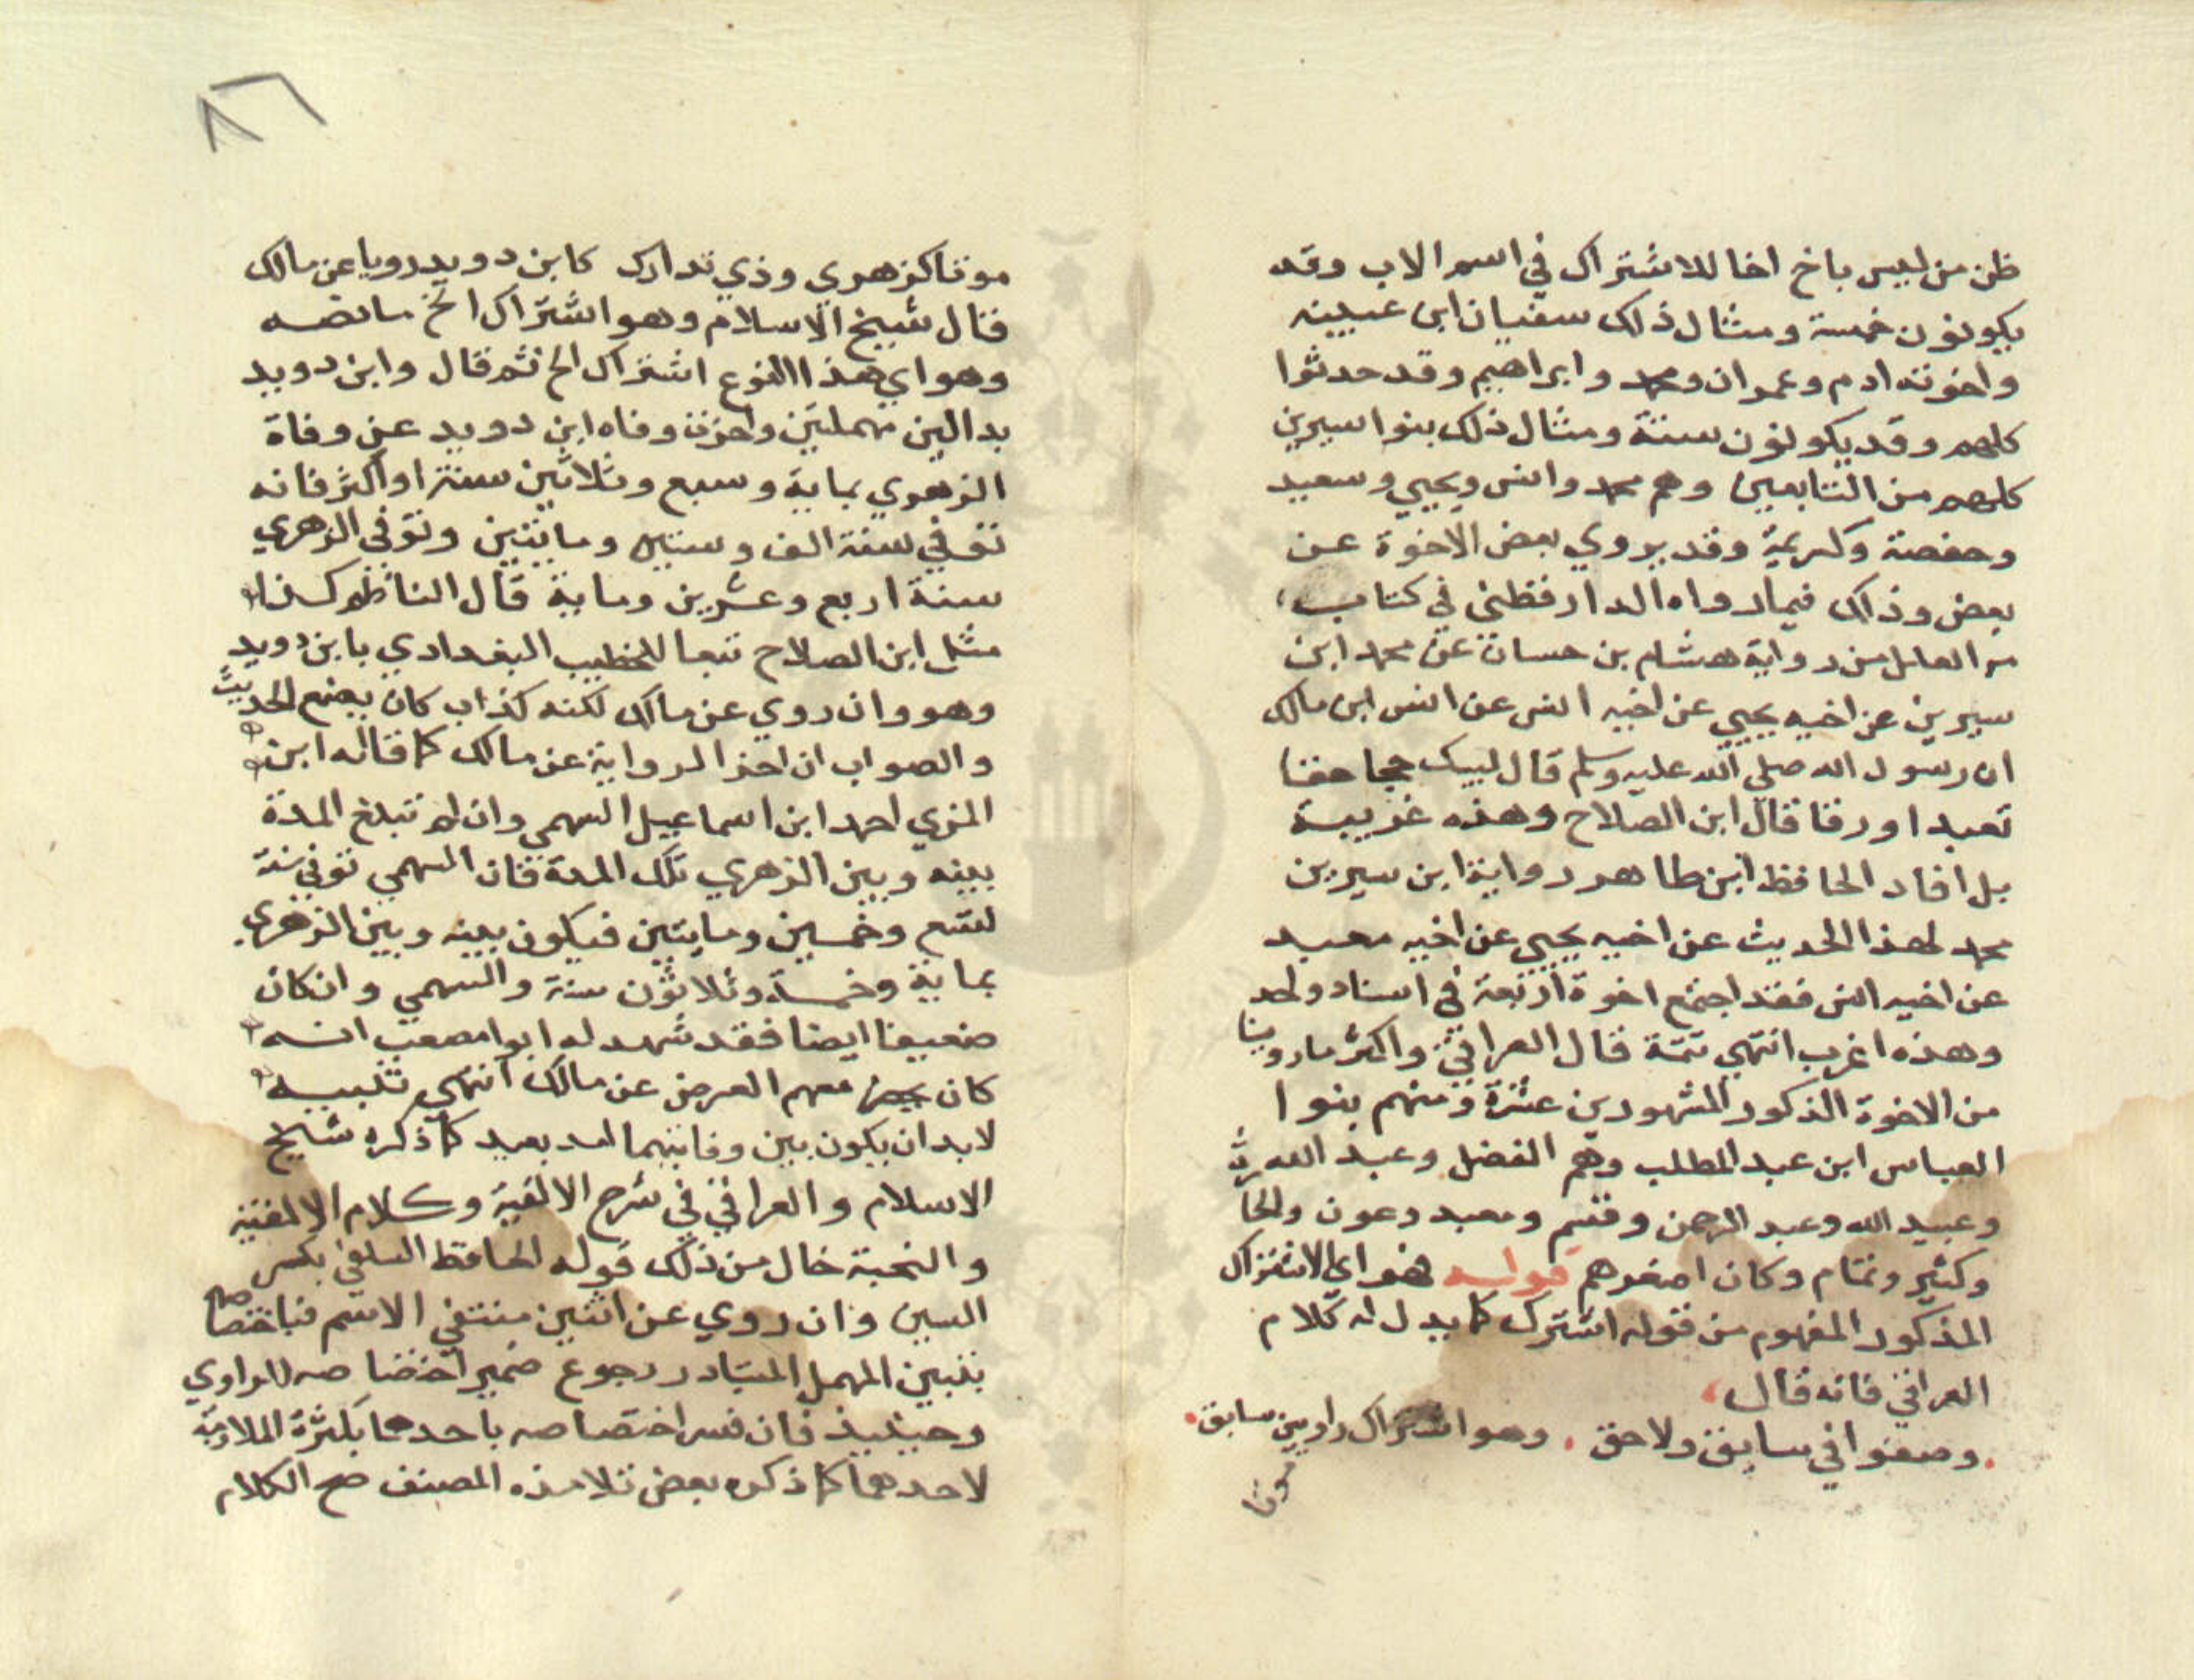 ظن من ليس باخ اخا للاشتراك في اسم الاب وقد
يكونون خمسة ومثال ذلك سفيان ابن عيينه
واخوته ادم وعمران ومحمد وابراهيم وقد حدثوا
كلهم وقد يكونون ستة ومثال ذلك بنوا سيرين
كلهم من التابعين وهم محمد وانس ويحيي وسعيد
وحفصة وكريمة وقد يروي بعض الاخوة عن
بعض وذلك فيما رواه الدارقطني في كتاب
العلل من رواية هشام بن حسان عن محمد ابن
سيرين عن اخيه يحيي عن اخيه انس عن انس ابن مالك
ان رسول الله صلي الله عليه وسلم قال لبيك حجا حقا
تعبدا ورقا قال ابن الصلاح وهذه غريبة
بل افاد الحافظ ابن طاهر رواية ابن سيرين
محمد لهذا الحديث عن اخيه يحيي عن اخيه معبد
عن اخيه انس فقد اجتمع اخوة اربعة في اسناد واحد
وهذه اغرب انتهي تتمة قال العراقي واكثر ما روينا
من الاخوة الذكور المشهورين عشرة ومنهم بنوا
العباس ابن عبد المطلب وهم الفضل وعبد الله
وعبيد الله وعبد الرحمن وقثم ومعبد وعون والحا
وكثير وتمام وكان اصغرهم قوله هو اي الاشتراك
المذكور المفهوم من قوله اشترك كما يدل له كلام
العراقي فانه قال
وصنفوا في سابق ولاحق . وهو اشتراك راويين سابق
موتا
موتا كزهري وذي تدارك كابن دويد رويا عن مالك
قال شيخ الاسلام وهو اشتراك الخ ما نصه
وهو اي هذا النوع اشتراك الخ ثم قال وابن دويد
بدالين مهملتين واخرت وفاه ابن دويد عن وفاة
الزهري بماية وسبع وثلاثين سنة او اكثر فانه
توفي سنة الف وستين ومايتين وتوفي الزهري
سنة اربع وعشرين وماية قال الناظم كذا
مثل ابن الصلاح تبعا للخطيب البغدادي بابن دويد
وهو وان روي عن مالك لكنه كذاب كان يضع الحديث
والصواب ان اخر الرواية عن مالك كما قاله ابن
المزي احمد ابن اسماعيل السهمي وان لم تبلغ المدة
بينه وبين الزهري تلك المدة فان السهمي توفي سنة
تسع وخمسين ومايتين فيكون بينه وبين الزهري
بماية وخمسة وثلاثون سنة والسهمي وان كان
ضعيفا ايضا فقد شهد له ابوا مصعب انه
كان يحضر معهم العرض عن مالك انتهي تنبيه
لا بد ان يكون بين وفاتيهما امد بعيد كما ذكره شيخ
الاسلام والعراقي في شرح الالفية وكلام الالفية
والنخبة خال من ذلك قوله الحافظ السلفي بكسر
السين وان روي عن اثنين متفقي الاسم فباختصاصه
بتبين المهمل المتبادر رجوع ضمير اختصاصه للراوي
وحينيذ فان فسر اختصاصه باحدهما بكثرة الملازمة
لاحدهما كما ذكره بعض تلامذه المصنف صح الكلام